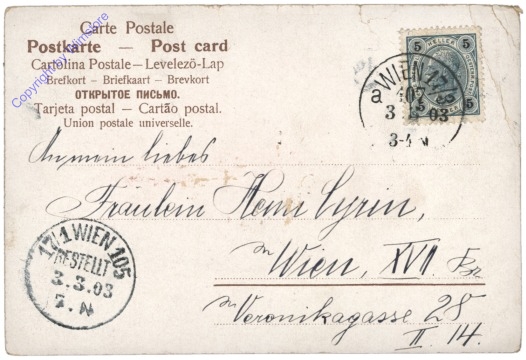 Carte Postale
Postkarte — Post card
Cartolina Postale — Levelező-Lap
Brefkort - Briefkaart - Brevkort
ОТКРЫТОЕ ПИСЬМО.
Tarjeta postal — Cartão postal.
Union postale universelle.
5 HELLER 5
5 5
WIEN 17/3
a 107
3 03
3-4 N
An mein liebes
Fräulein
in
Wien, XVII
Veronikagasse 28
II. 14.
17/1 WIEN 105
BESTELLT
3.3.03
7. N
Copyright by